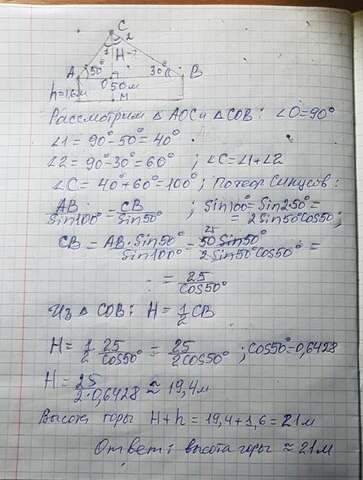 C
1 2
H-?
A 50° 30° B
O
h=1,6м 50м
M
Рассмотрим △AOC и △COB: ∠O=90°
∠1=90°-50°=40°
∠2=90°-30°=60° ; ∠C=∠1+∠2
∠C=40°+60°=100°; По теор Синусов:
AB/Sin100° = CB/Sin50° ; Sin100°=Sin2·50°=
=2Sin50°Cos50°;
CB = AB·Sin50°/Sin100° = 50 Sin50°/2Sin50°Cos50° =
25
= 25/Cos50°
Из △COB: H=1/2 CB
H=1/2 · 25/Cos50° = 25/2Cos50° ; Cos50°=0,6428
H= 25/2·0,6428 ≈ 19,4м
Высота горы H+h=19,4+1,6=21м
Ответ: высота горы ≈ 21м